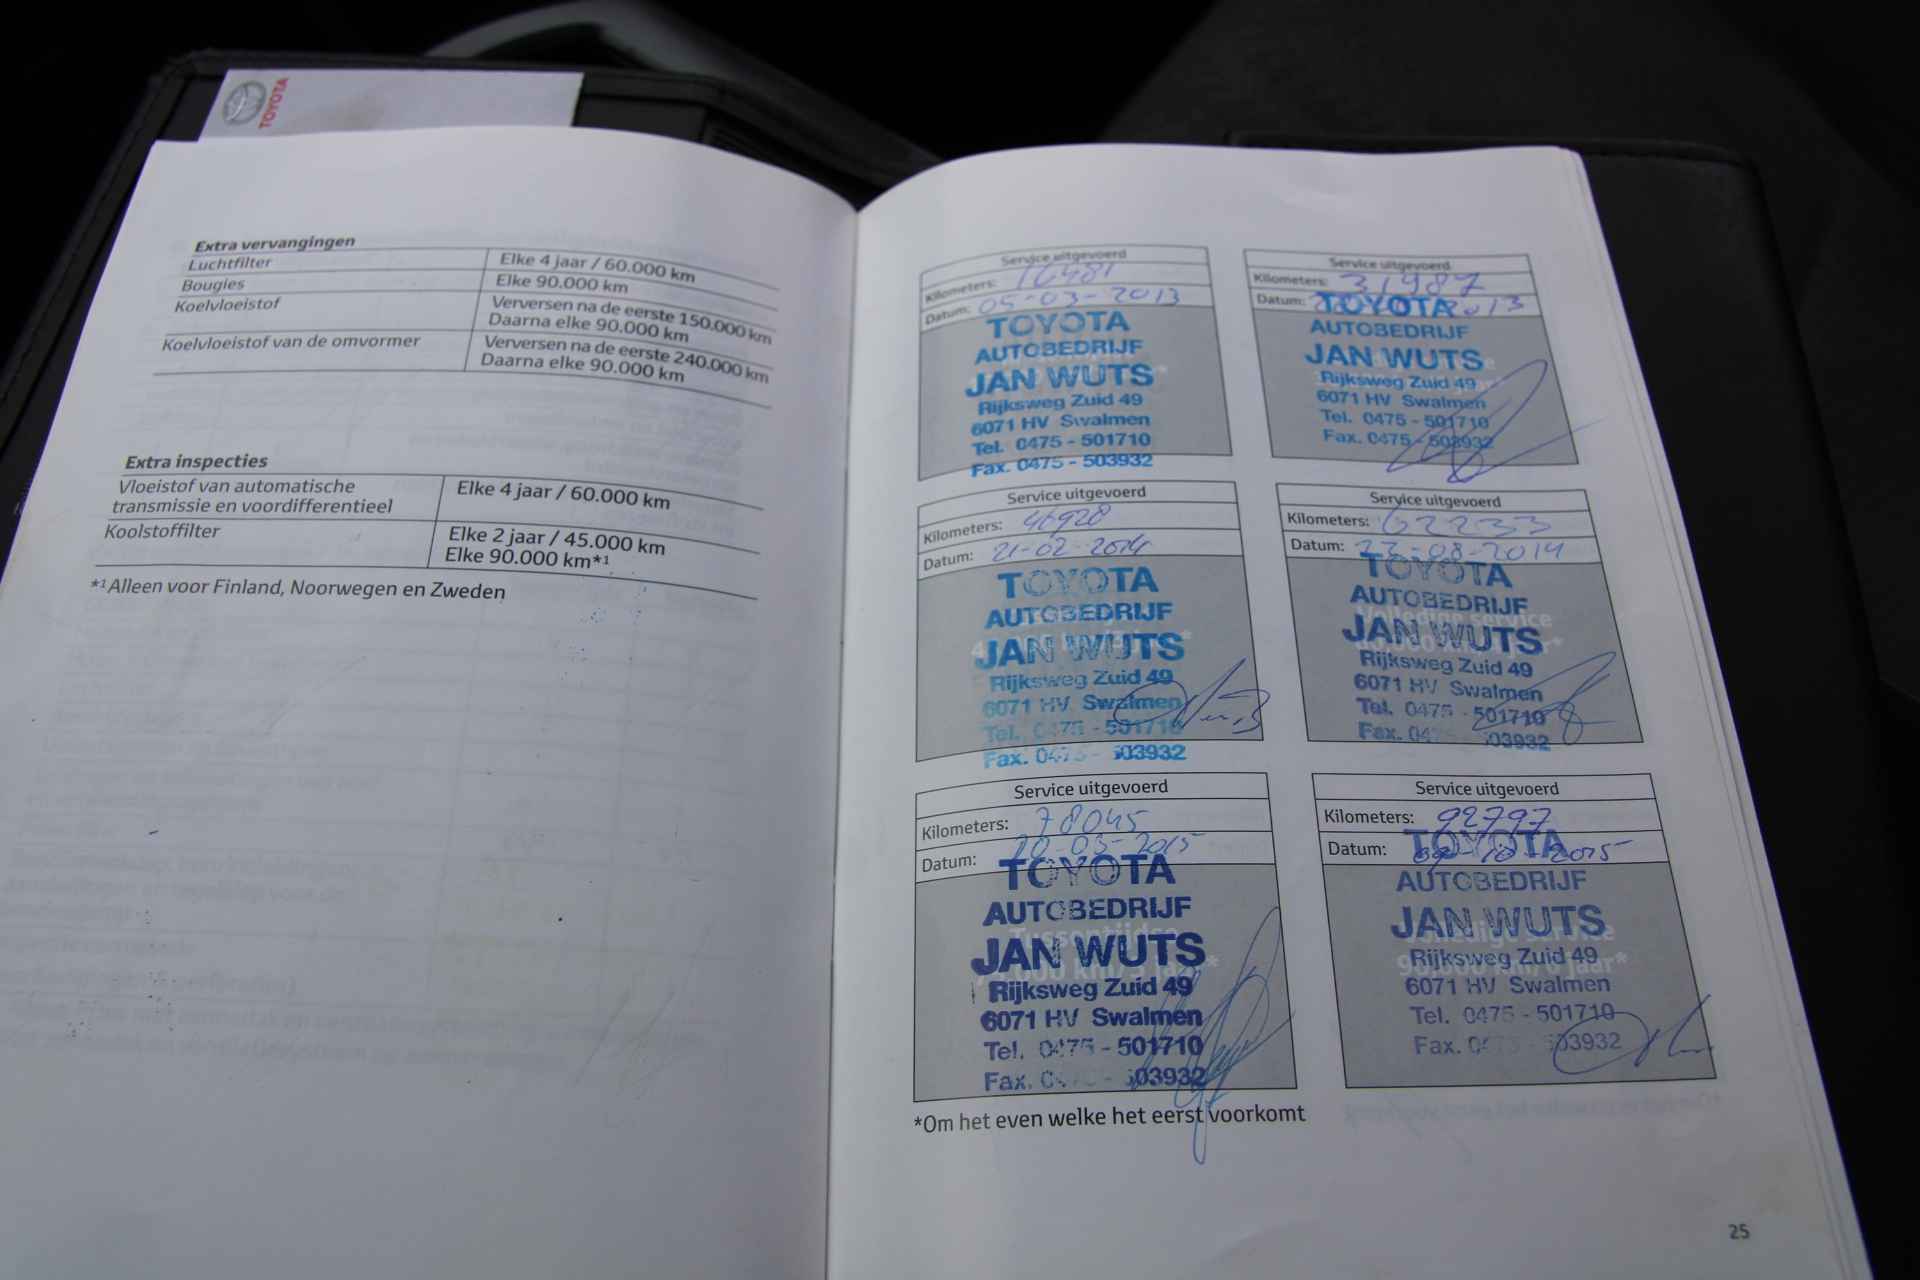 TOYOTA
Extra vervangingen
Luchtfilter Elke 4 jaar / 60.000 km
Bougies Elke 90.000 km
Koelvloeistof Verversen na de eerste 150.000 km
Daarna elke 90.000 km
Koelvloeistof van de omvormer Verversen na de eerste 240.000 km
Daarna elke 90.000 km
Extra inspecties
Vloeistof van automatische
transmissie en voordifferentieel Elke 4 jaar / 60.000 km
Koolstoffilter Elke 2 jaar / 45.000 km
Elke 90.000 km*1
*1 Alleen voor Finland, Noorwegen en Zweden
Service uitgevoerd
Kilometers: 16481
Datum: 05-03-2013
TOYOTA
AUTOBEDRIJF
JAN WUTS
Rijksweg Zuid 49
6071 HV Swalmen
Tel. 0475 - 501710
Fax. 0475 - 503932
Service uitgevoerd
Kilometers: 31987
Datum: 2013
TOYOTA
AUTOBEDRIJF
JAN WUTS
Rijksweg Zuid 49
6071 HV Swalmen
Tel. 0475 - 501710
Fax. 0475 - 503932
Service uitgevoerd
Kilometers: 46928
Datum: 21-02-2014
TOYOTA
AUTOBEDRIJF
JAN WUTS
Rijksweg Zuid 49
6071 HV Swalmen
Tel. 0475 - 501710
Fax. 0475 - 503932
Service uitgevoerd
Kilometers: 62233
Datum: 22-08-2014
TOYOTA
AUTOBEDRIJF
Volledige service
JAN WUTS
Rijksweg Zuid 49
6071 HV Swalmen
Tel. 0475 - 501710
Fax. 0475 - 503932
Service uitgevoerd
Kilometers: 78045
Datum: 20-03-2015
TOYOTA
AUTOBEDRIJF
Tussentijdse
JAN WUTS
Rijksweg Zuid 49
6071 HV Swalmen
Tel. 0475 - 501710
Fax. 0475 - 503932
Service uitgevoerd
Kilometers: 92797
Datum: 09-10-2015
TOYOTA
AUTOBEDRIJF
JAN WUTS
Volledige service
Rijksweg Zuid 49
90.000 km/ 6 jaar*
6071 HV Swalmen
Tel. 0475 - 501710
Fax. 0475 - 503932
*Om het even welke het eerst voorkomt
25